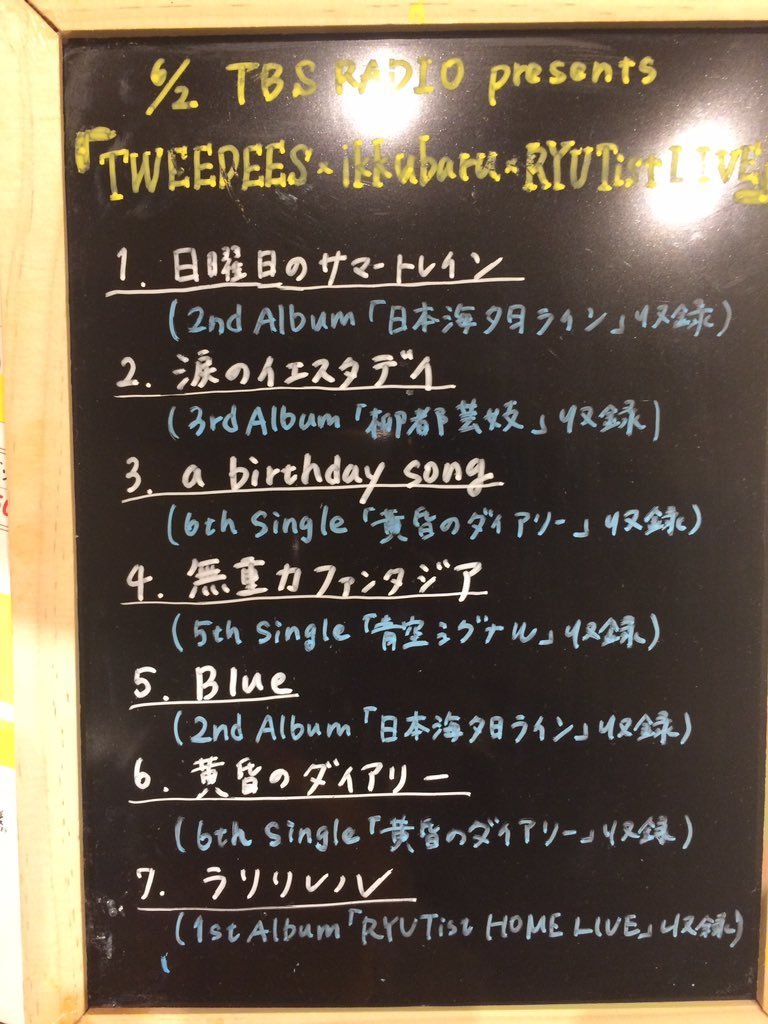 6/2. TBS RADIO presents
「TWEEDEES×ikkubaru×RYUTist LIVE」
1. 日曜日のサマートレイン
(2nd Album「日本海夕日ライン」収録)
2. 涙のイエスタデイ
(3rd Album「柳都芸妓」収録)
3. a birthday song
(6th Single「黄昏のダイアリー」収録)
4. 無重力ファンタジア
(5th Single「青空シグナル」収録)
5. Blue
(2nd Album「日本海夕日ライン」収録)
6. 黄昏のダイアリー
(6th Single「黄昏のダイアリー」収録)
7. ラリリレル
(1st Album「RYUTist HOME LIVE」収録)